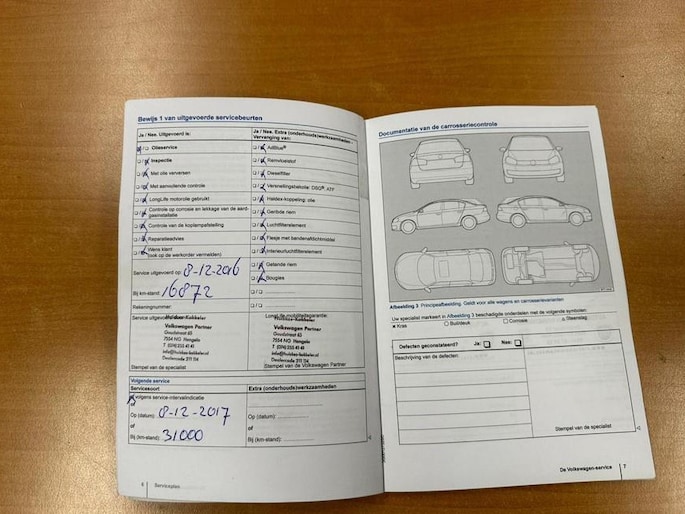 Bewijs 1 van uitgevoerde servicebeurten
Ja / Nee. Uitgevoerd is:
Ja / Nee. Extra (onderhouds)werkzaamheden –
Vervanging van:
Olieservice
AdBlue®
Inspectie
Remvloeistof
Met olie verversen
Dieselfilter
Met aanvullende controle
Versnellingsbakolie: DSG®, ATF
LongLife motorolie gebruikt
Haldex-koppeling: olie
Controle op corrosie en lekkage van de aard-
gasinstallatie
Geribde riem
Controle van de koplampafstelling
Luchtfilterelement
Reparatieadvies
Flesje met bandenafdichtmiddel
Wens klant
(ook op de werkorder vermelden)
Interieurluchtfilterelement
Getande riem
Service uitgevoerd op: 8-12-2016
Bougies
Bij km-stand: 16872
Rekeningnummer:
Service uitgevoerd
Longlife mobiliteitsgarantie:
Volkswagen Partner
7554 NG Hengelo
Dealercode 311 114
Volkswagen Partner
7554 NG Hengelo
Dealercode 311 114
Stempel van de specialist
Stempel van de Volkswagen Partner
Volgende service
Servicesoort
Extra (onderhouds)werkzaamheden
volgens service-intervalindicatie
of
Op (datum): 8-12-2017
Op (datum):
of
of
Bij (km-stand): 31000
Bij (km-stand):
6 Serviceplan
Documentatie van de carrosseriecontrole
Afbeelding 3 Principeafbeelding. Geldt voor alle wagens en carrosserievarianten
Uw specialist markeert in Afbeelding 3 beschadigde onderdelen met de volgende symbolen:
× Kras
○ Buil/deuk
□ Corrosie
△ Steenslag
Defecten geconstateerd? Ja: Nee:
Beschrijving van de defecten:
Stempel van de specialist
De Volkswagen-service 7